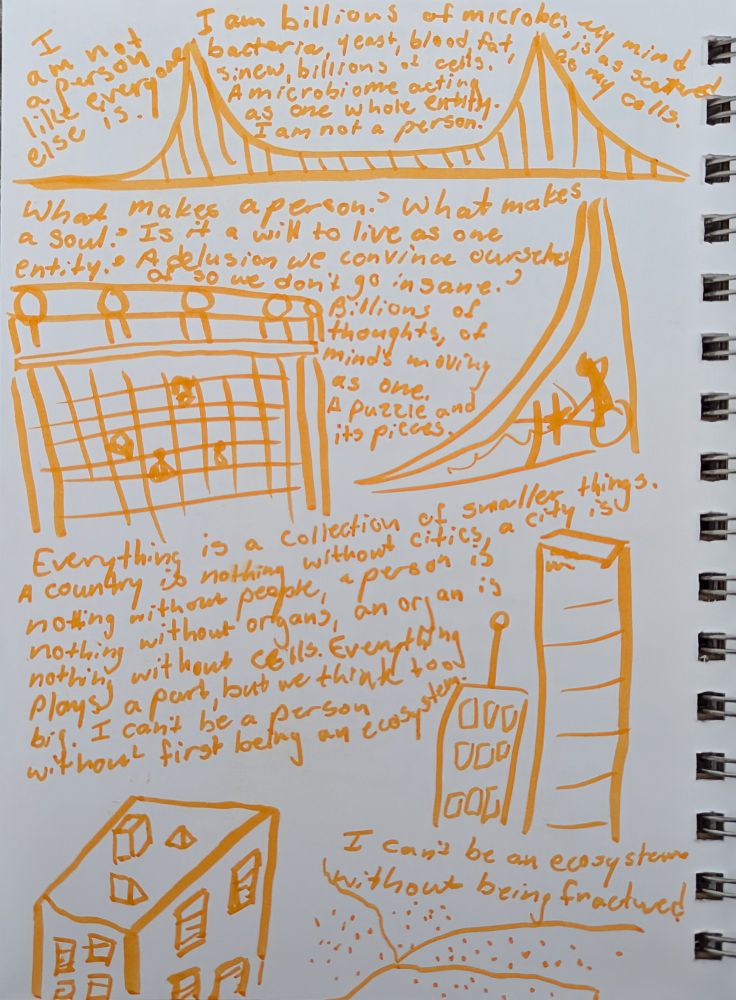 I
am not
a person
like everyone
else is.
I am billions of microbes, my mind
bacteria, yeast, blood, fat, is as scattered
sinew, billions of cells. as my cells.
A microbiome acting
as one whole entity.
I am not a person.
What makes a person? What makes
a soul? Is it a will to live as one
entity? A delusion we convince ourselves
of so we don't go insane?
Billions of
thoughts, of
minds moving
as one.
A puzzle and
its pieces.
Everything is a collection of smaller things.
A country is nothing without cities, a city is
nothing without people, a person is
nothing without organs, an organ is
nothing without cells. Everything
plays a part, but we think too
big. I can't be a person
without first being an ecosystem.
I can't be an ecosystem
without being fractured